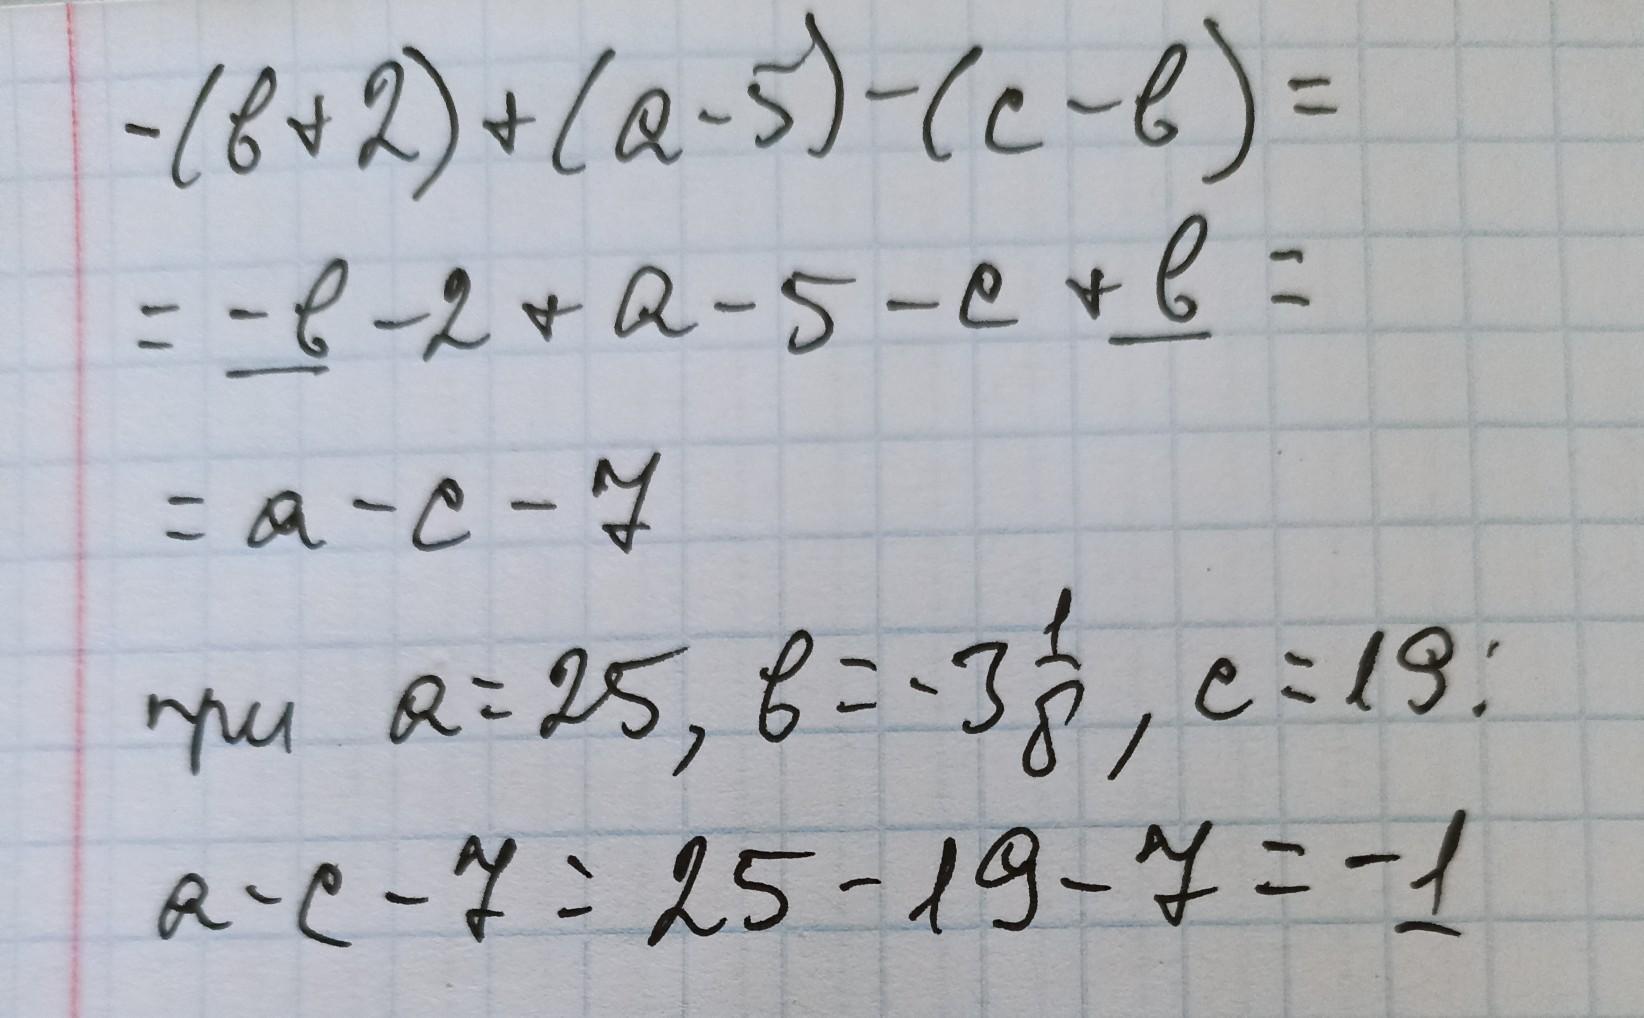 -(в+2)+(а-5)-(с-в)=
=-в-2+а-5-с+в=
=а-с-7
при а=25, в=-3 1/8, с=19:
а-с-7=25-19-7=-1